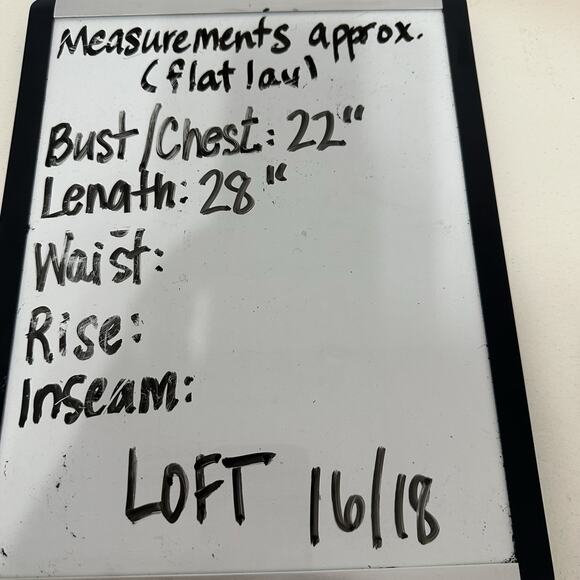 Measurements approx.
(flat lay)
Bust/Chest: 22"
Length: 28"
Waist:
Rise:
Inseam:
LOFT 16/18